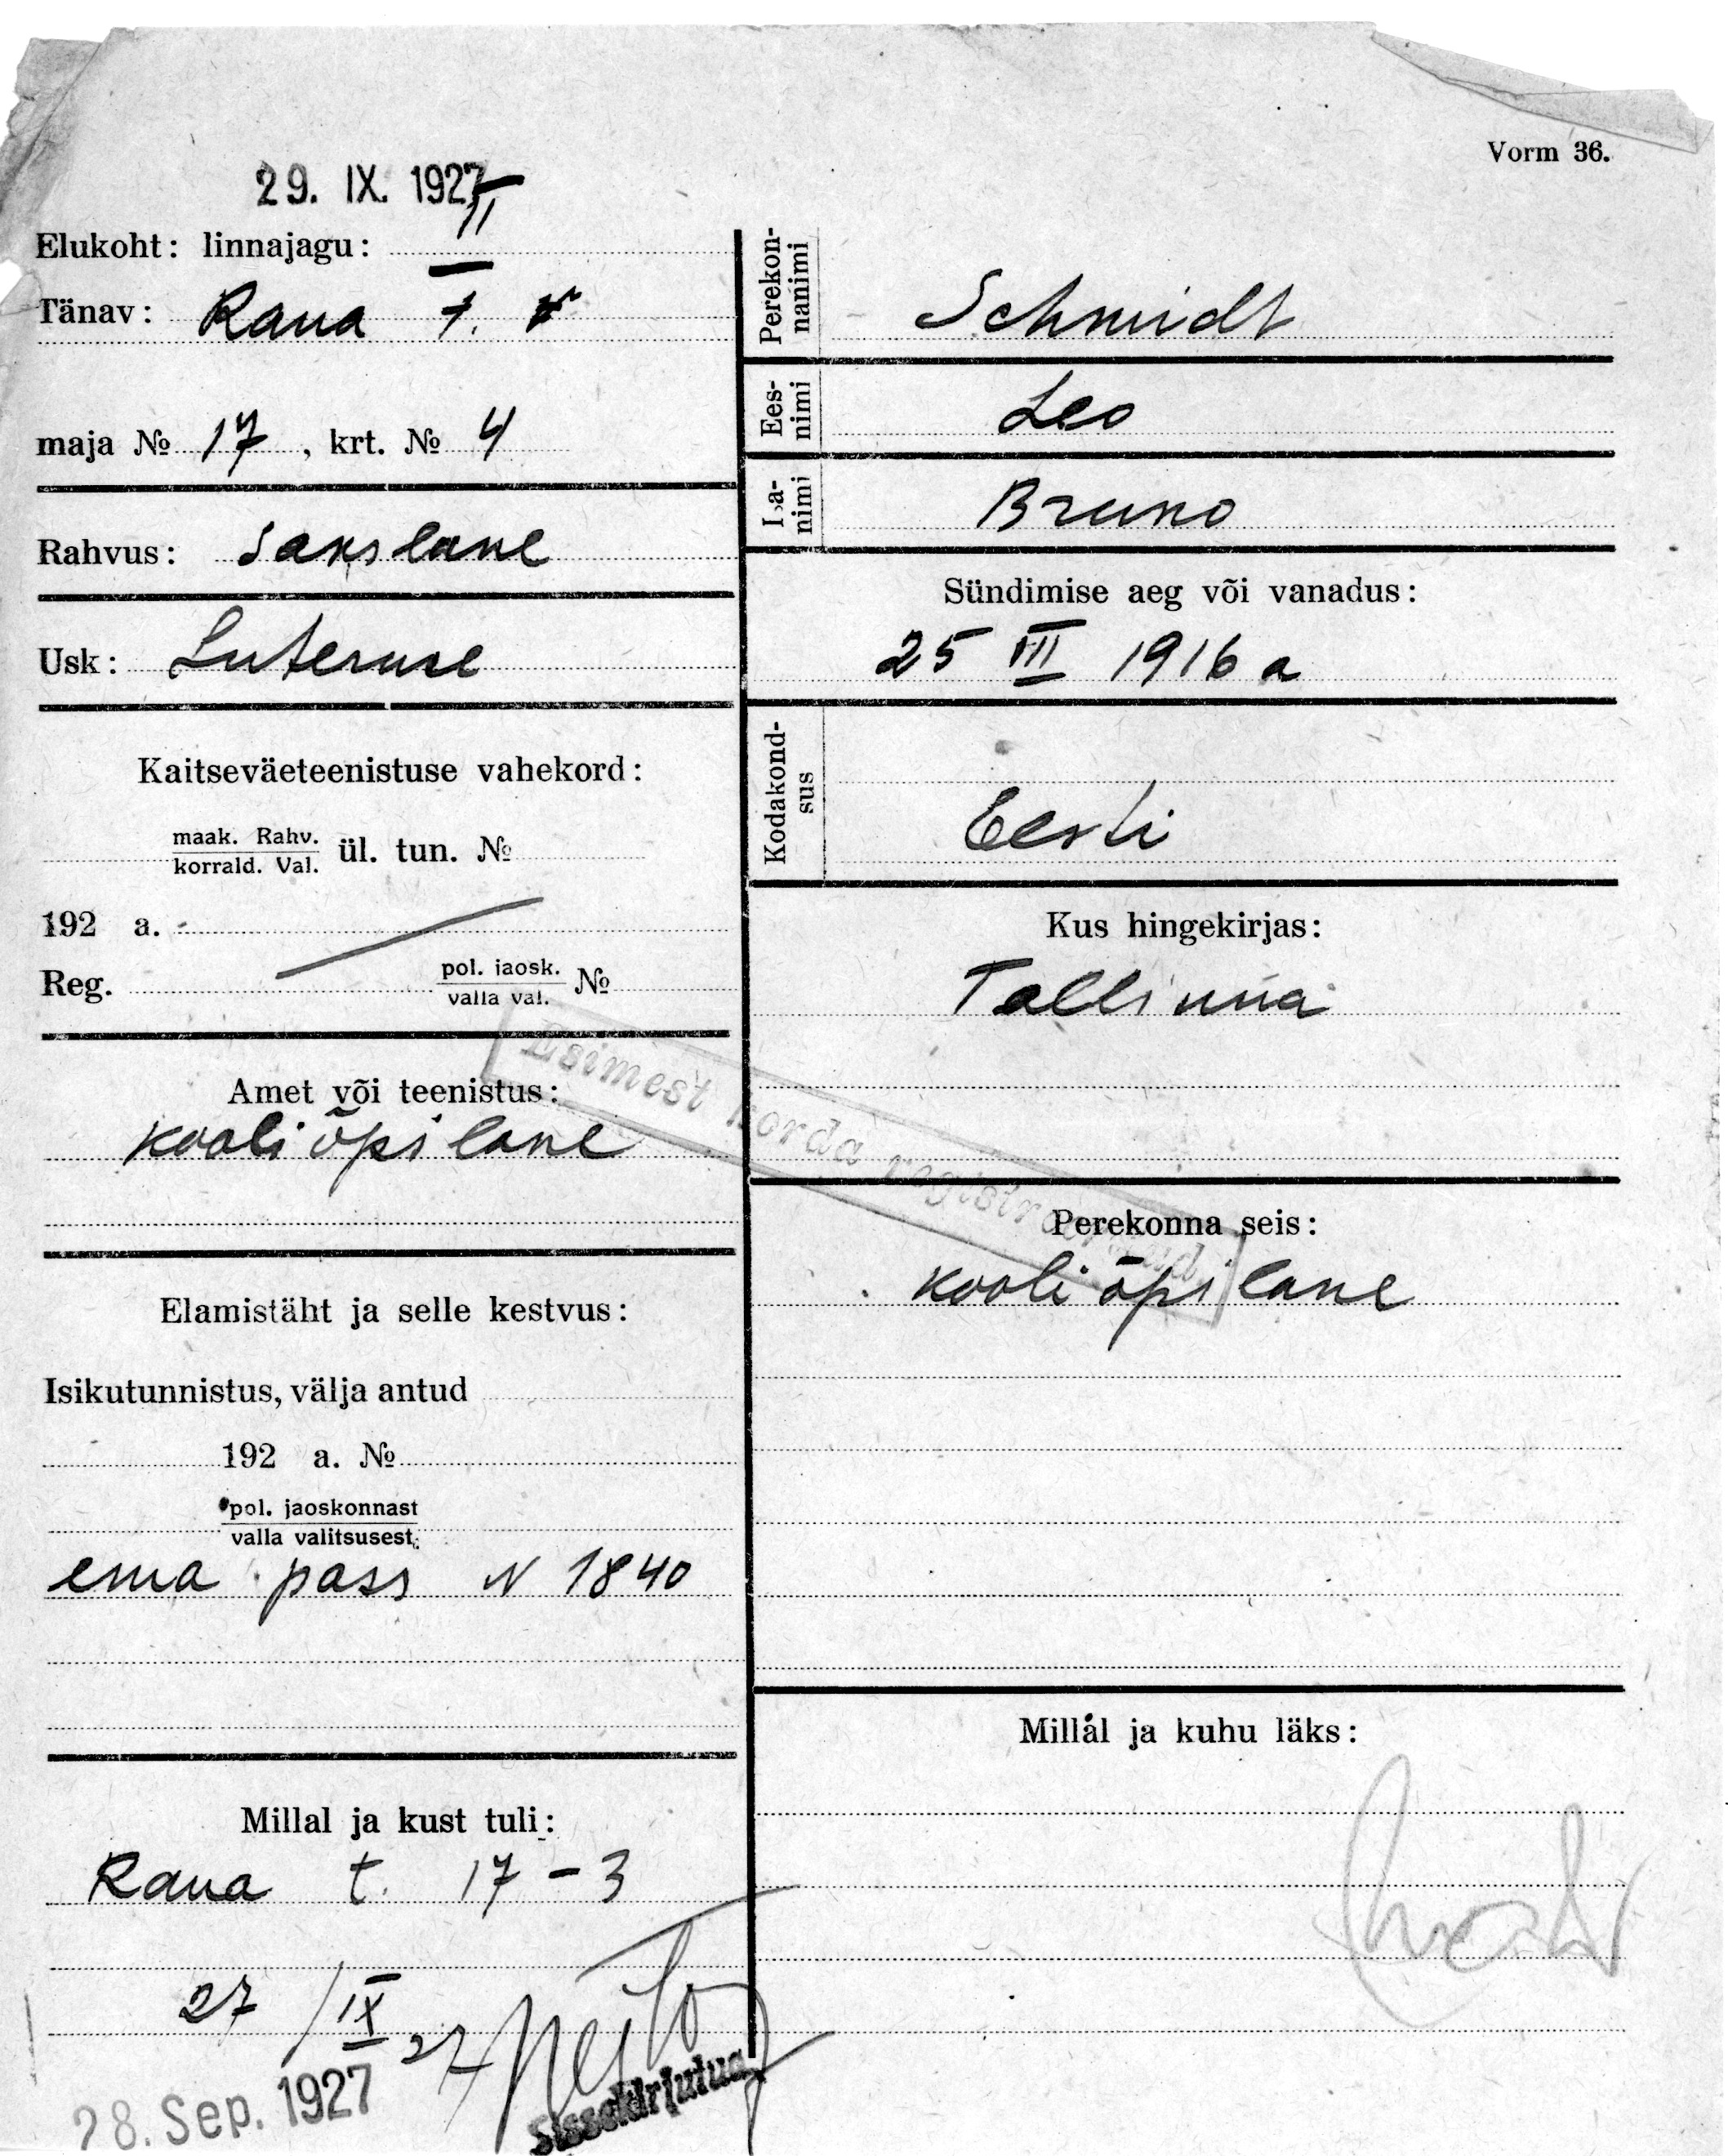 Vorm 36.
29. IX. 1927
Elukoht: linnajagu: II
Tänav: Raua t.
maja № 17, krt. № 4
Rahvus: Sakslane
Usk: Luteruse
Kaitseväeteenistuse vahekord:
maak. Rahv.
korrald. Val. ül. tun. №
192 a.
Reg. pol. jaosk.
valla val. №
Amet või teenistus:
kooliõpilane
Elamistäht ja selle kestvus:
Isikutunnistus, välja antud
192 a. №
pol. jaoskonnast
valla valitsusest:
ema pass N 1840
Millal ja kust tuli:
Raua t. 17 - 3
27/IX 27
28. Sep. 1927
Perekon-
nanimi
Schmidt
Ees-
nimi
Leo
Isa-
nimi
Bruno
Sündimise aeg või vanadus:
25 III 1916 a
Kodakond-
sus
Eesti
Kus hingekirjas:
Tallinna
Esimest korda registreeritud
Perekonna seis:
kooliõpilane
Millal ja kuhu läks: